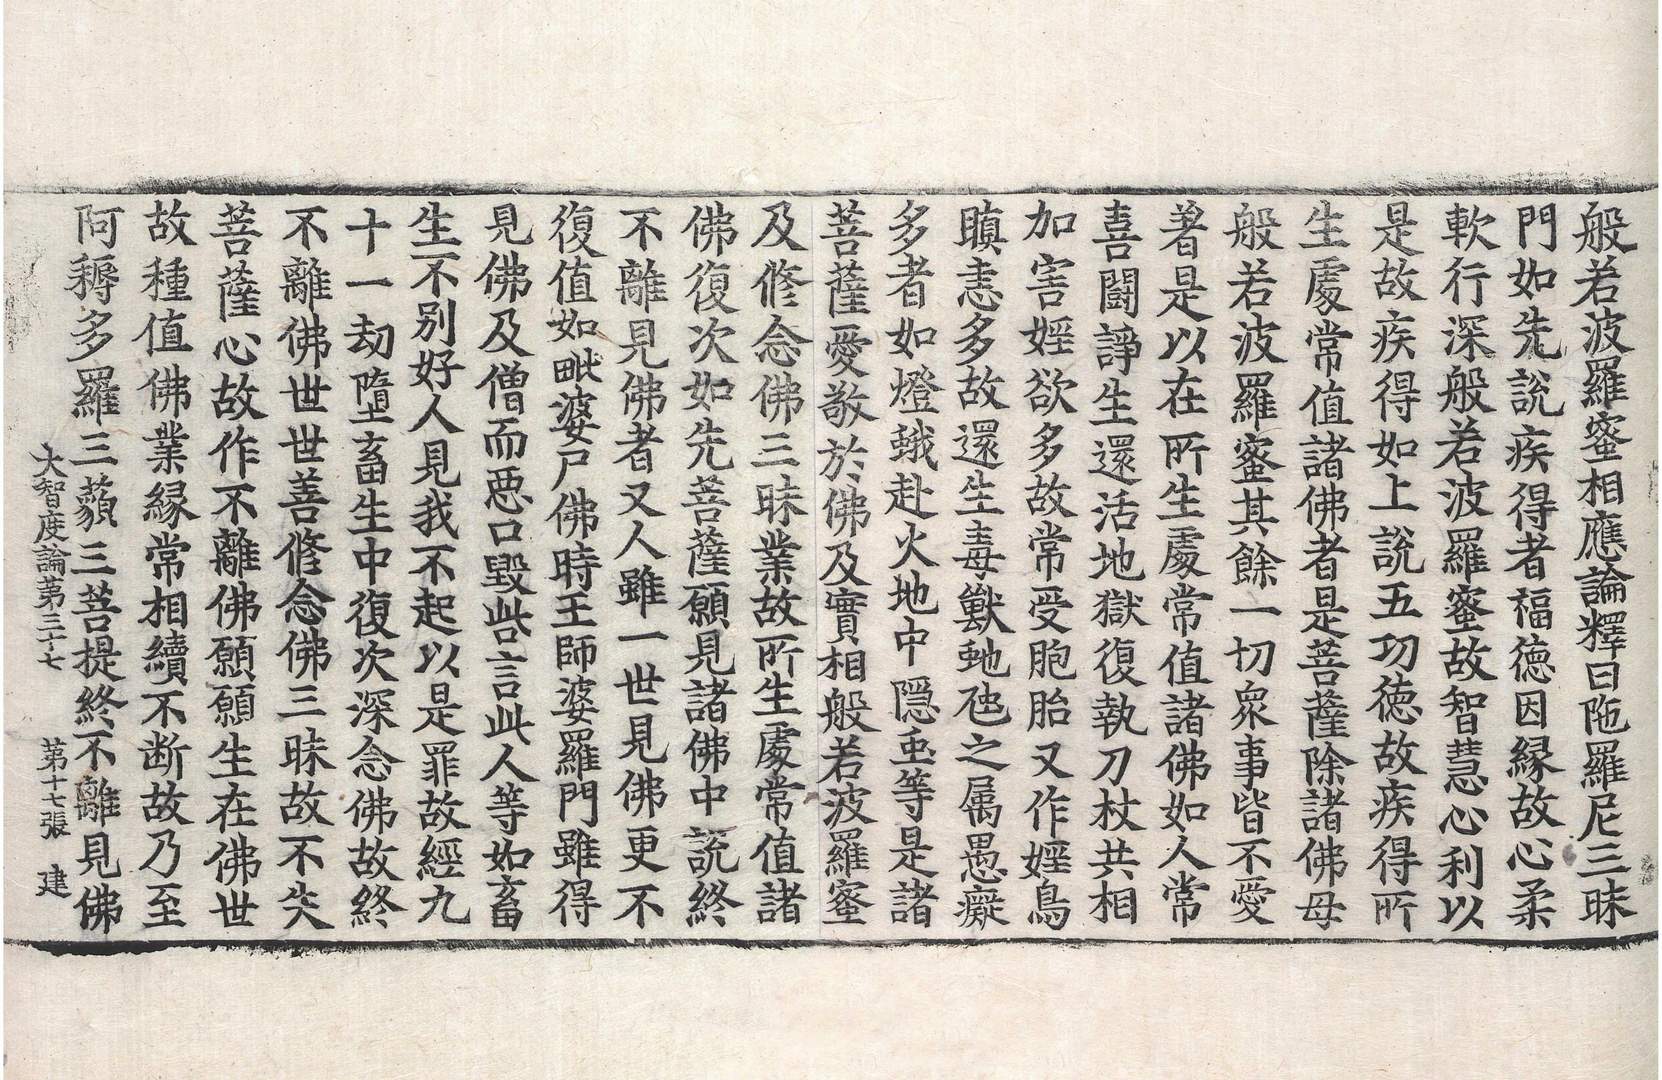 般若波羅蜜相應論釋曰陁羅尼三昧
門如先說疾得者福德因縁故心柔
軟行深般若波羅蜜故智慧心利以
是故疾得如上說五功德故疾得所
生處常值諸佛者是菩薩除諸佛母
般若波羅蜜其餘一切衆事皆不愛
著是以在所生處常值諸佛如人常
喜鬪諍生還活地獄復執刀杖共相
加害婬欲多故常受胞胎又作婬鳥
瞋恚多故還生毒獸虵虺之属愚癡
多者如燈蛾赴火地中隱虫等是諸
菩薩愛敬於佛及實相般若波羅蜜
及修念佛三昧業故所生處常值諸
佛復次如先菩薩願見諸佛中說終
不離見佛者又人雖一世見佛更不
復值如毗婆尸佛時王師婆羅門雖得
見佛及僧而惡口毀呰言此人等如畜
生不別好人見我不起以是罪故經九
十一劫墮畜生中復次深念佛故終
不離佛世世善修念佛三昧故不失
菩薩心故作不離佛願願生在佛世
故種值佛業縁常相續不断故乃至
阿耨多羅三藐三菩提終不離見佛
大智度論第三十七 第十七張 建